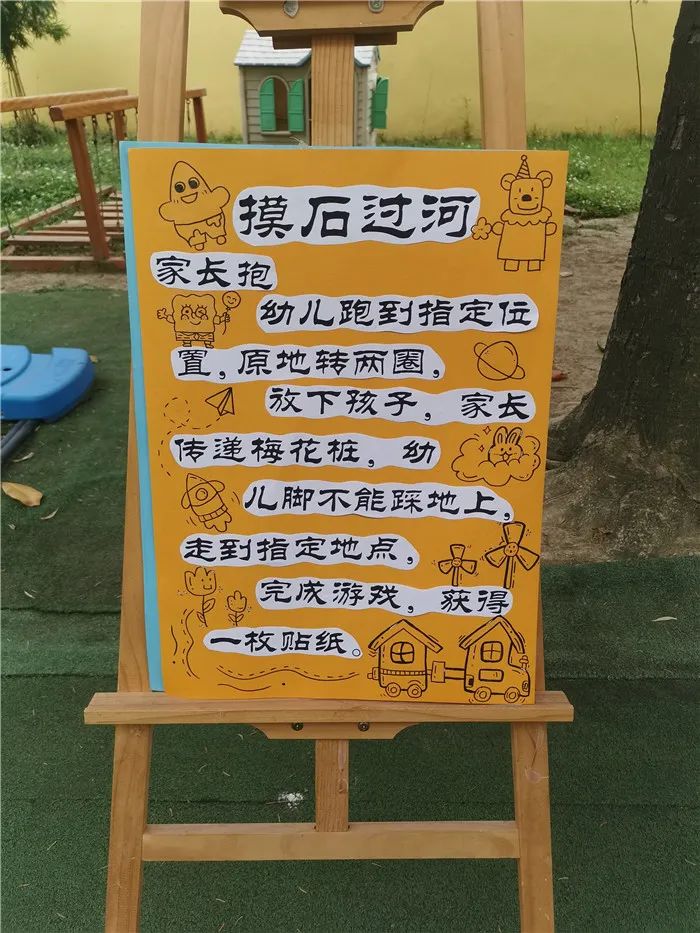 摸石过河
家长抱
幼儿跑到指定位
置，原地转两圈，
放下孩子，家长
传递梅花桩，幼
儿脚不能踩地上，
走到指定地点，
完成游戏，获得
一枚贴纸。